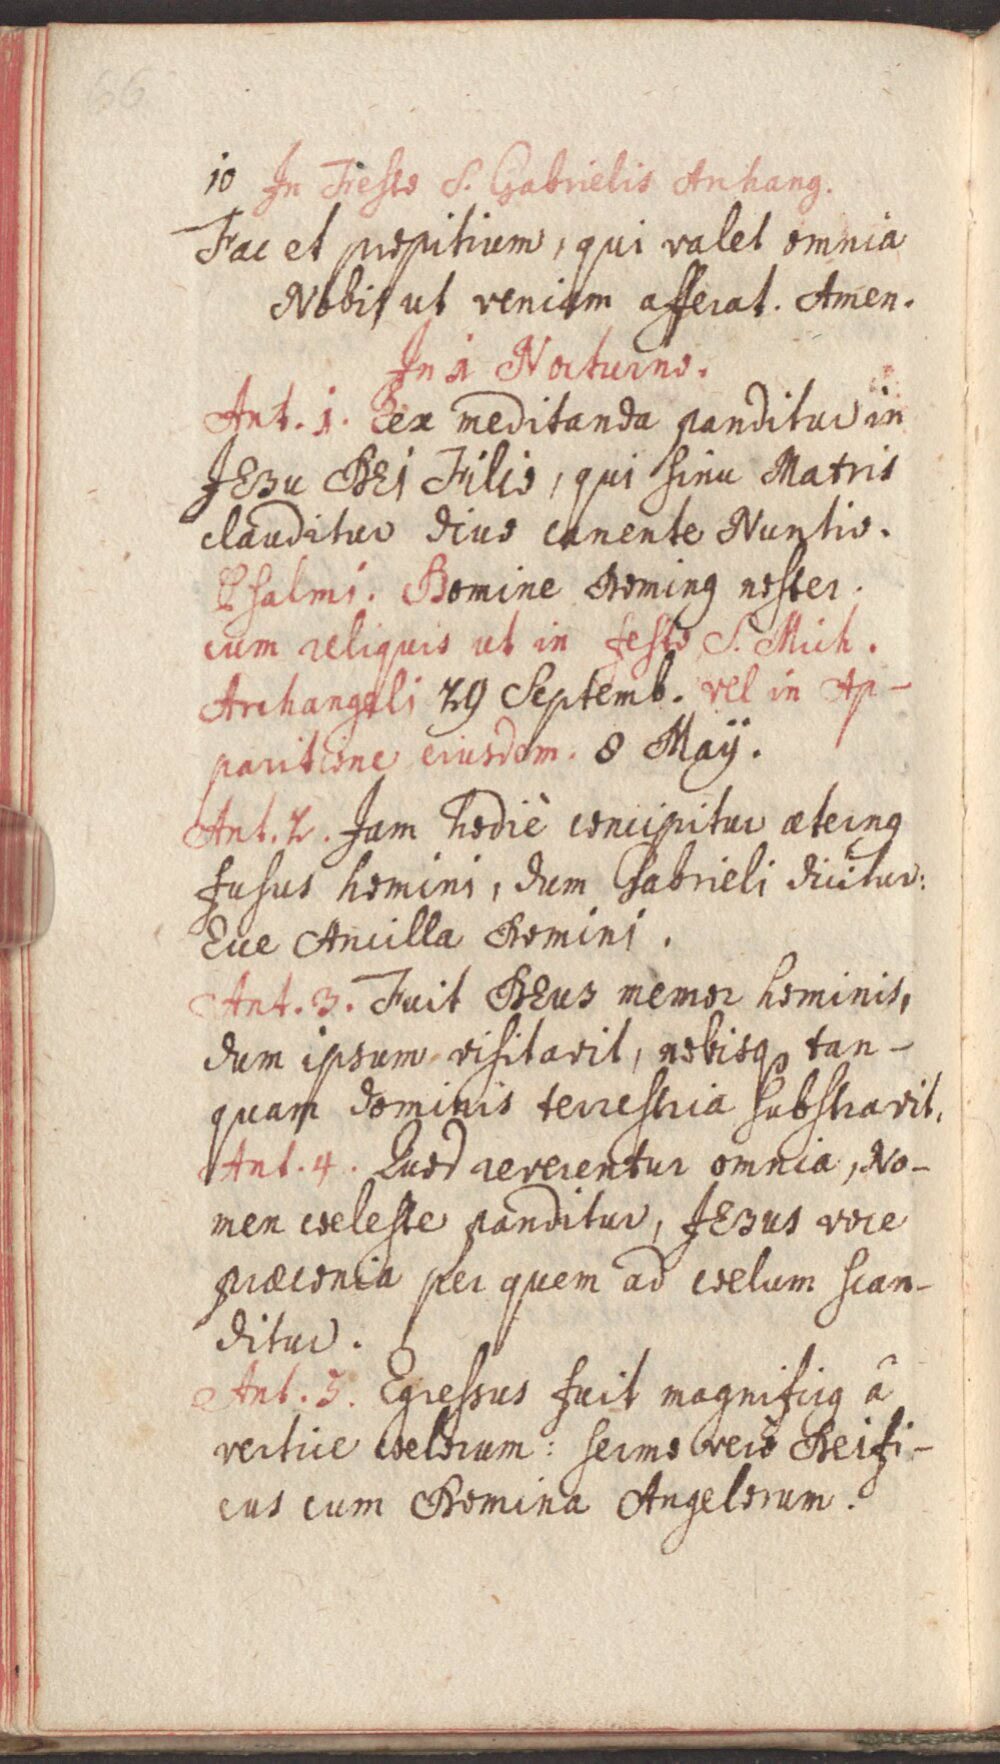 66
10 In Festo S. Gabrielis Archang.
Fac et propitium, qui valet omnia
Nobis ut veniam afferat. Amen.
In 1 Nocturno.
Ant. 1. Lex meditanda panditur in
JEsu DEi Filio, qui sinu Matris
clauditur dius canente Nuntio.
Psalmi. Domine Dominꝰ noster.
cum reliquis ut in festo S. Mich.
Archangeli 29 Septemb. vel in Ap-
paritione eiusdem. 8 Maÿ.
Ant. 2. Jam hodiè concipitur æternꝰ
fusus homini, dum Gabrieli dicitur:
Ecce Ancilla Domini.
Ant. 3. Fuit DEus memor hominis,
dum ipsum visitavit, nobisqꝫ tan-
quam dominis terrestria substravit.
Ant. 4. Quod reverentur omnia, No-
men cœleste panditur, JEsus voce
præconia per quem ad cœlum scan-
ditur.
Ant. 5. Egressus fuit magnificꝰ â
vertice cœlorum: sermo verò Deifi-
cus cum Domina Angelorum.